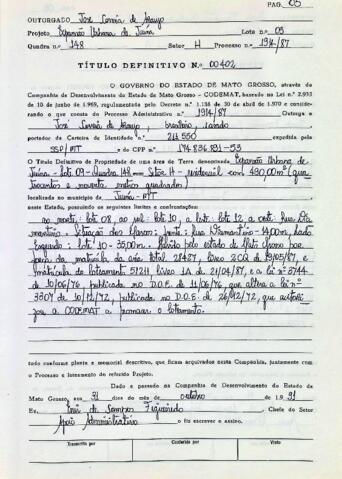 PAG. 03
OUTORGADO José Correia de Araujo
Projeto Expansão Urbana de Juína Lote n.º 09
Quadra n.º 148 Setor H Processo n.º 1914/87
TÍTULO DEFINITIVO N.º 00402
O GOVERNO DO ESTADO DE MATO GROSSO, através da
Companhia de Desenvolvimento do Estado de Mato Grosso - CODEMAT, baseado na Lei n.º 2.933
de 10 de junho de 1.969, regulamentada pelo Decreto n.º 1.138 de 30 de abril de 1.970 e considerando
o que consta do Processo Administrativo n.º 1914/87 Outorga a
José Correia de Araujo, brasileiro, casado
portador da Carteira de Identidade n.º 211 550 expedida pela
SSP/MT e do CPF n.º 174.836.831-53
O Título Definitivo de Propriedade de uma área de Terra denominada Expansão Urbana de
Juína - lote 09 - Quadra 148 - Setor H - residencial com 490,00m² (quatrocentos
e noventa metros quadrados)
localizada no município de Juína-MT
neste Estado, possuindo os seguintes limites e confrontações:
ao norte: lote 08, ao sul: lote 10, a leste: lote 12, a oeste: Rua Diamantino.
Frente: Rua Diamantino - 14,00m, Lado
Esquerdo: lote 10 - 35,00m.
matrícula da área total 28487, livro 2CQ de 19/05/87, e
matrícula do loteamento 51211, livro 1A de 21/04/87, e a lei nº 3744
de 10/06/76, publicada no D.O.E. de 11/06/76, que altera a lei nº
3307 de 10/12/72, publicada no D.O.E. de 26/12/72, que autorizou
a CODEMAT a promover o loteamento.
tudo conforme planta e memorial descritivo, que ficam arquivados nesta Companhia, juntamente com
o Processo e loteamento do referido Projeto.
Dado e passado na Companhia de Desenvolvimento do Estado de
Mato Grosso, aos 31 dias do mês de outubro de 1.991
Eu, Enir de Campos Figueiredo Chefe do Setor
Apoio Administrativo o fiz escrever e assino.
Transcrito por Conferido por Visto